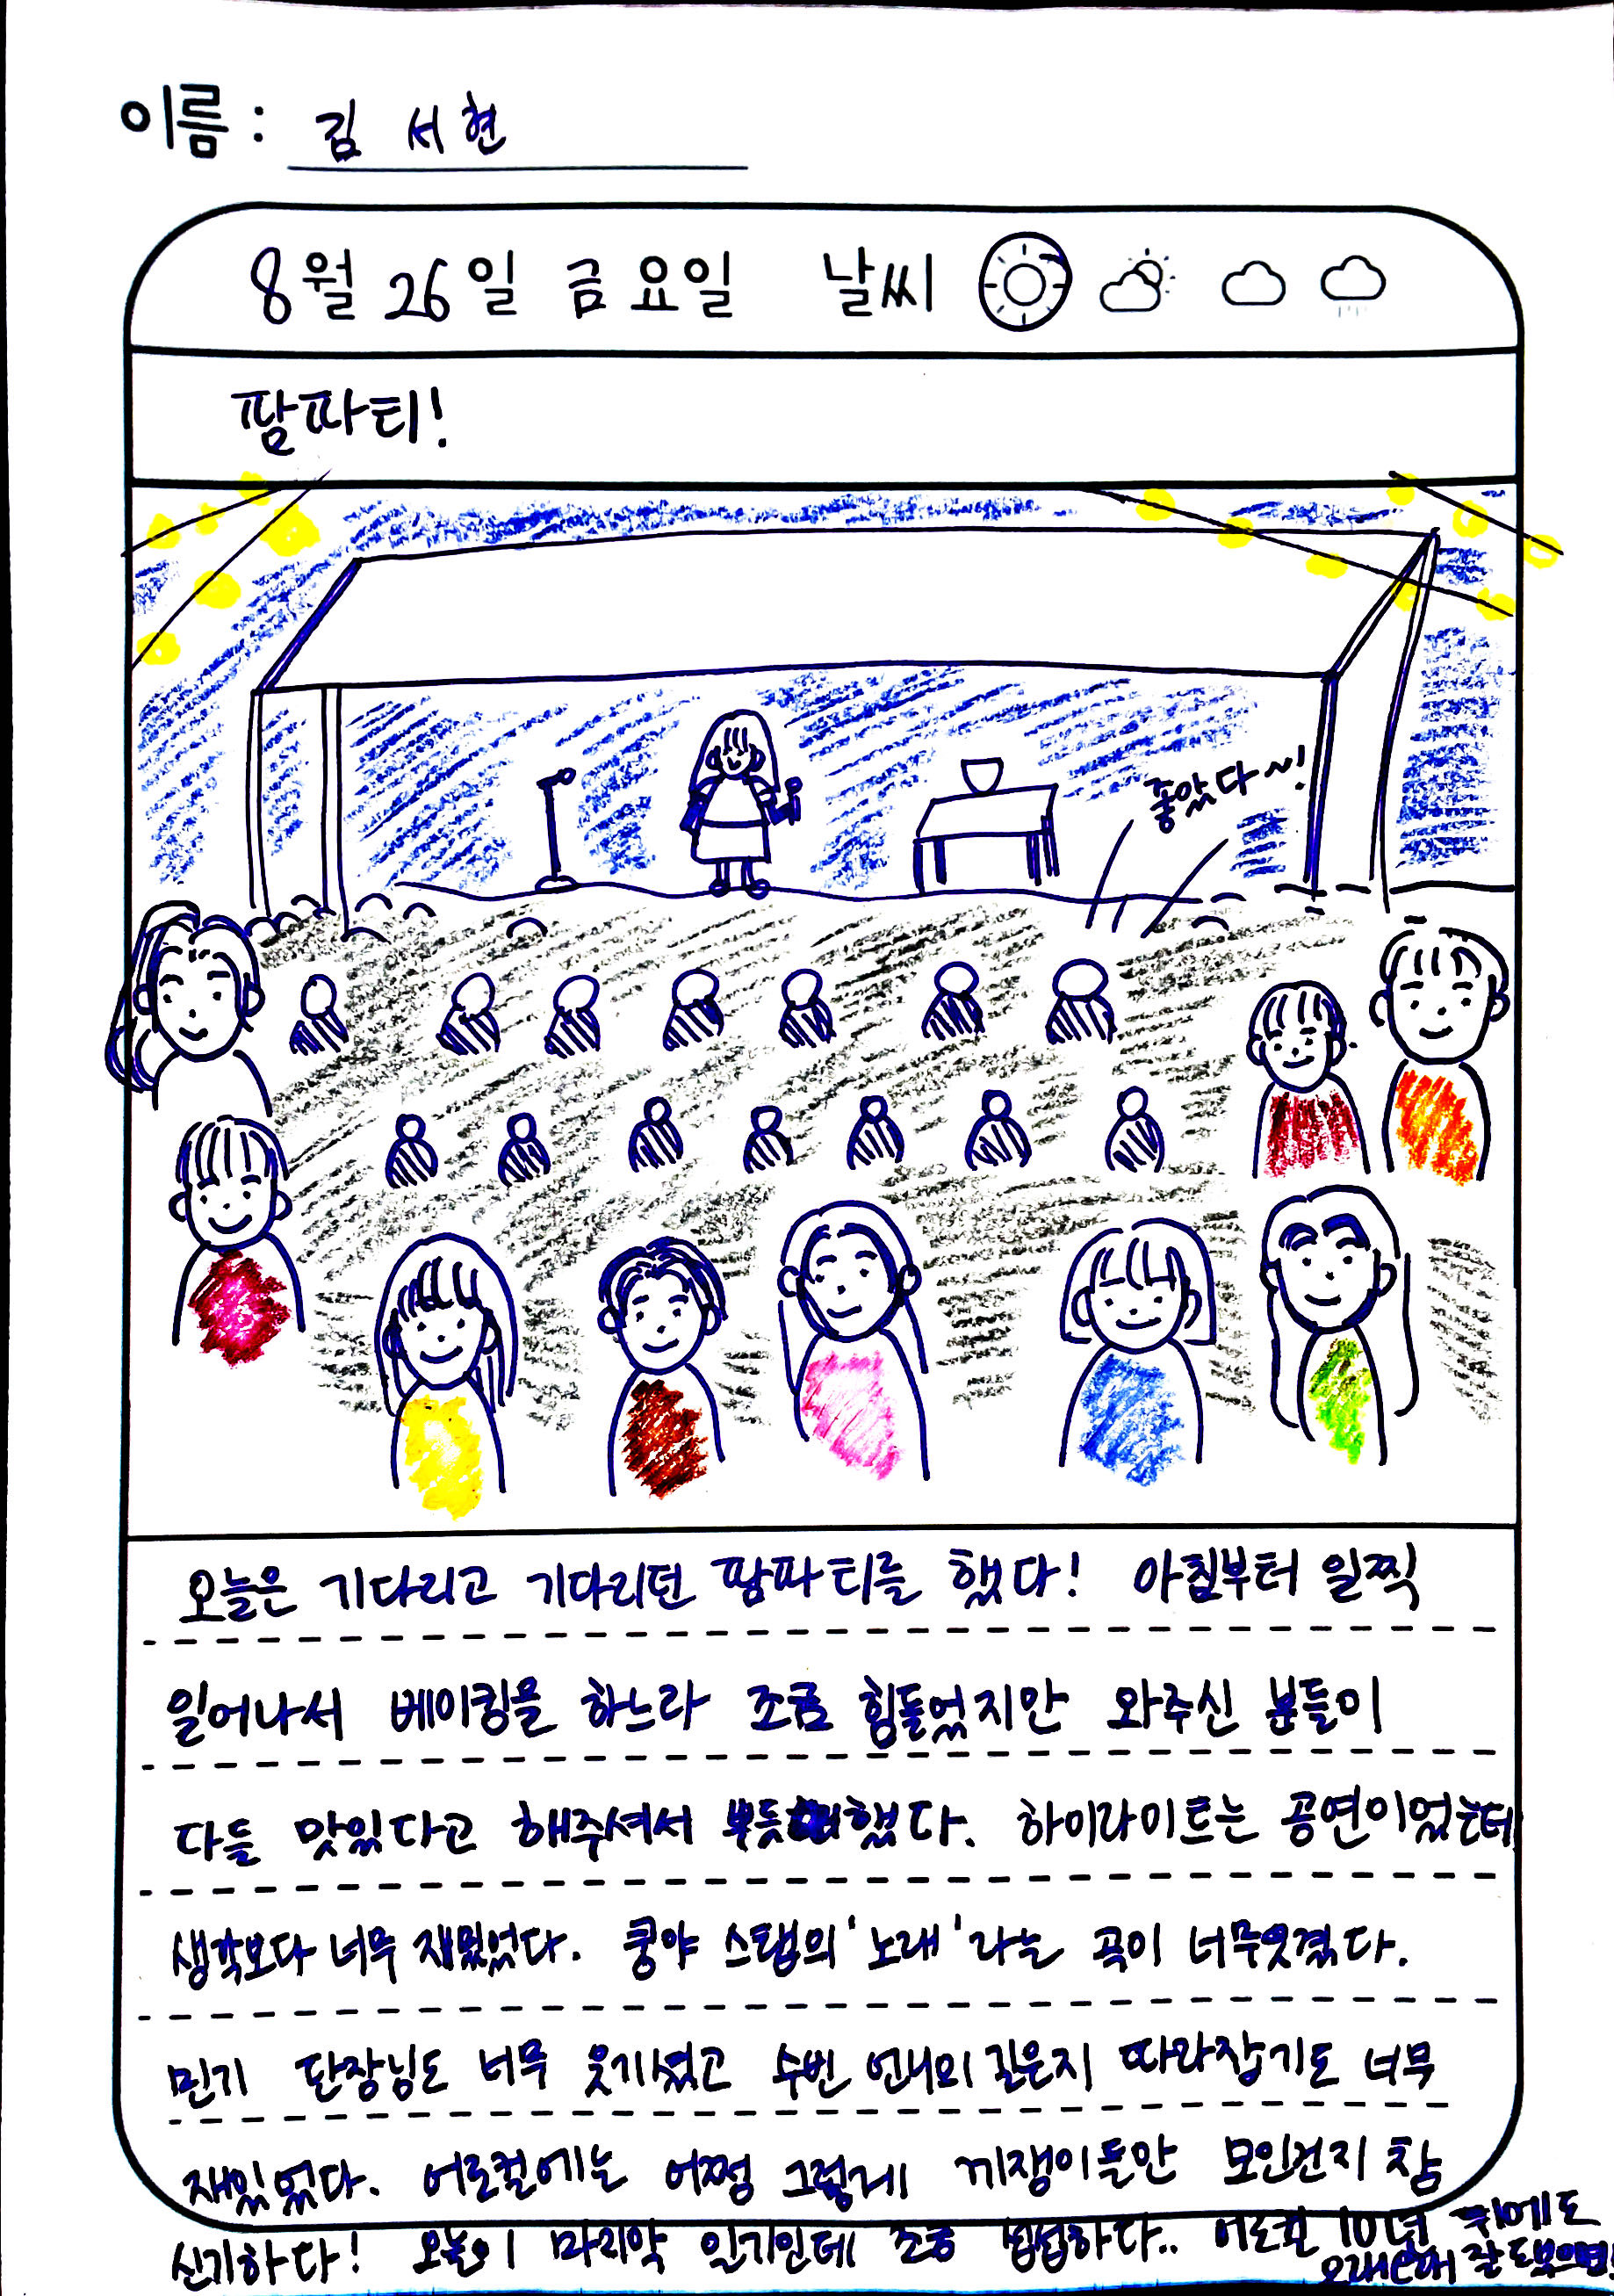 이름 : 김 서현
8월 26일 금요일 날씨
팜파티!
좋았다~!
오늘은 기다리고 기다리던 팜파티를 했다! 아침부터 일찍
일어나서 베이킹을 하느라 조금 힘들었지만 와주신 분들이
다들 맛있다고 해주셔서 뿌듯했다. 하이라이트는 공연이었는데
생각보다 너무 재밌었다. 쿵야 스탭의 '노래'라는 곡이 너무웃겼다.
민기 단장님도 너무 웃기셨고 수빈 언니의 깊은지 따라잡기도 너무
재밌었다. 어로컬에는 어쩜 그렇게 끼쟁이들만 모인건지 참
신기하다! 오늘이 마지막 일기인데 조금 섭섭하다.. 어로컬 10년 뒤에도
오래오래